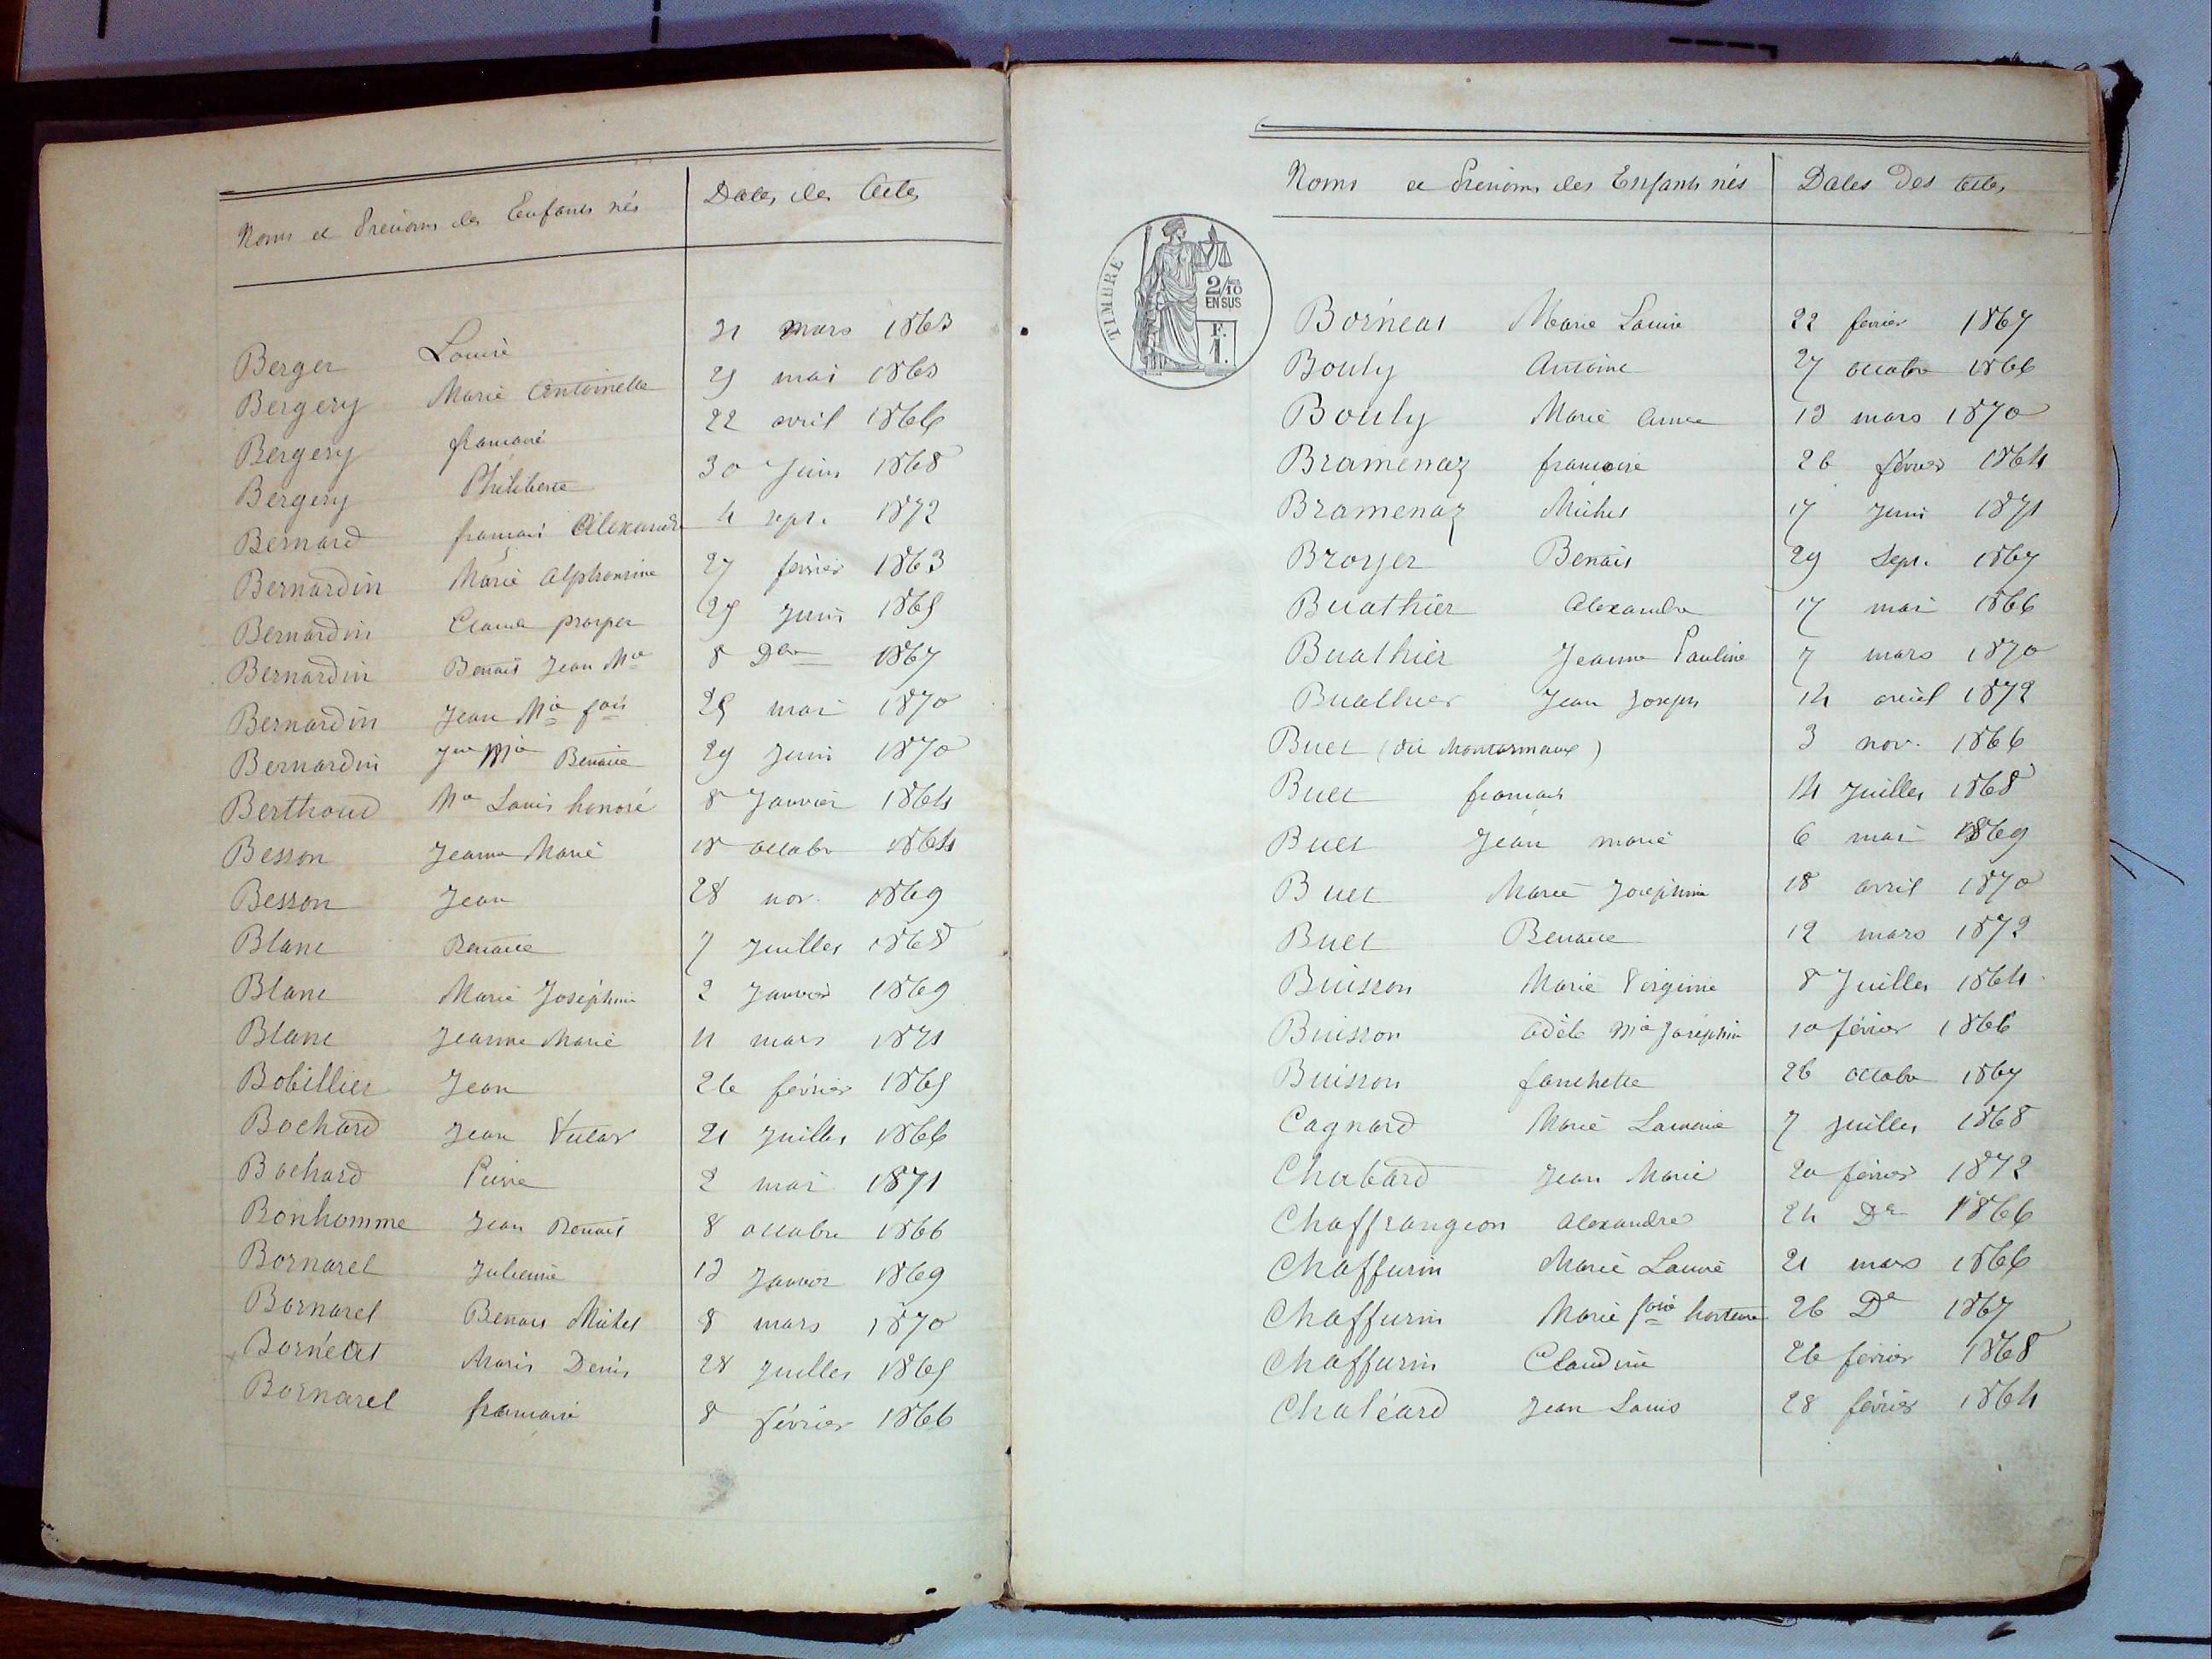 Noms et Prénoms des Enfants nés Dates des Actes
Berger Louise 21 mars 1863
Bergery Marie Antoinette 29 mai 1865
Bergery françoise 22 avril 1866
Bergery Philiberte 30 Juin 1868
Bernard françois Alexandre 4 sept. 1872
Bernardin Marie Alphonsine 27 février 1863
Bernardin prosper 25 Juin 1865
Bernardin Benoit Jean Mie 8 Dbre 1867
Bernardin Jean Mie fois 25 mai 1870
Bernardin Jne Mie Benoite 29 Juin 1870
Berthoud Mie Louis honoré 8 Janvier 1864
Besson Jeanne Marie 18 octobre 1864
Besson Jean 28 nov. 1869
Blanc Benoite 7 Juillet 1868
Blanc Marie Joséphine 2 Janvier 1869
Blanc Jeanne Marie 11 mars 1871
Bobillier Jean 26 février 1865
Bochard Jean Victor 21 Juillet 1866
Bochard Pierre 2 mai 1871
Bonhomme Jean Benoit 8 octobre 1866
Bornarel Julienne 13 Janvier 1869
Bornarel Benoit Michel 8 mars 1870
Bornéat Marie Denis 28 Juillet 1865
Bornarel françoise 8 février 1866
Noms et Prénoms des Enfants nés Dates des Actes
TIMBRE
2/10
EN SUS
F.
1.
Bornéat Marie Louise 22 février 1867
Bouly Antoine 27 octobre 1866
Bouly Marie Anne 13 mars 1870
Bramenaz françoise 26 février 1864
Bramenaz Michel 17 Juin 1871
Broyer Benoit 29 Sept. 1867
Buathier Alexandre 17 mai 1866
Buathier Jeanne Pauline 7 mars 1870
Buathier Jean Joseph 14 avril 1872
Buet (dit Montarmaux) 3 nov. 1866
Buet françois 14 Juillet 1868
Buet Jean marie 6 mai 1869
Buet Marie Joséphine 18 avril 1870
Buet Benoite 12 mars 1872
Buisson Marie Virginie 8 Juillet 1864
Buisson Adèle Mie Joséphine 10 février 1866
Buisson fanchette 26 octobre 1867
Cagnard Marie Laurence 7 Juillet 1868
Chabard Jean Marie 20 février 1872
Chaffrangeon Alexandre 24 De 1866
Chaffurin Marie Louise 21 mars 1866
Chaffurin Marie foise hortense 26 De 1867
Chaffurin Claudine 26 février 1868
Chaléard Jean Louis 28 février 1864